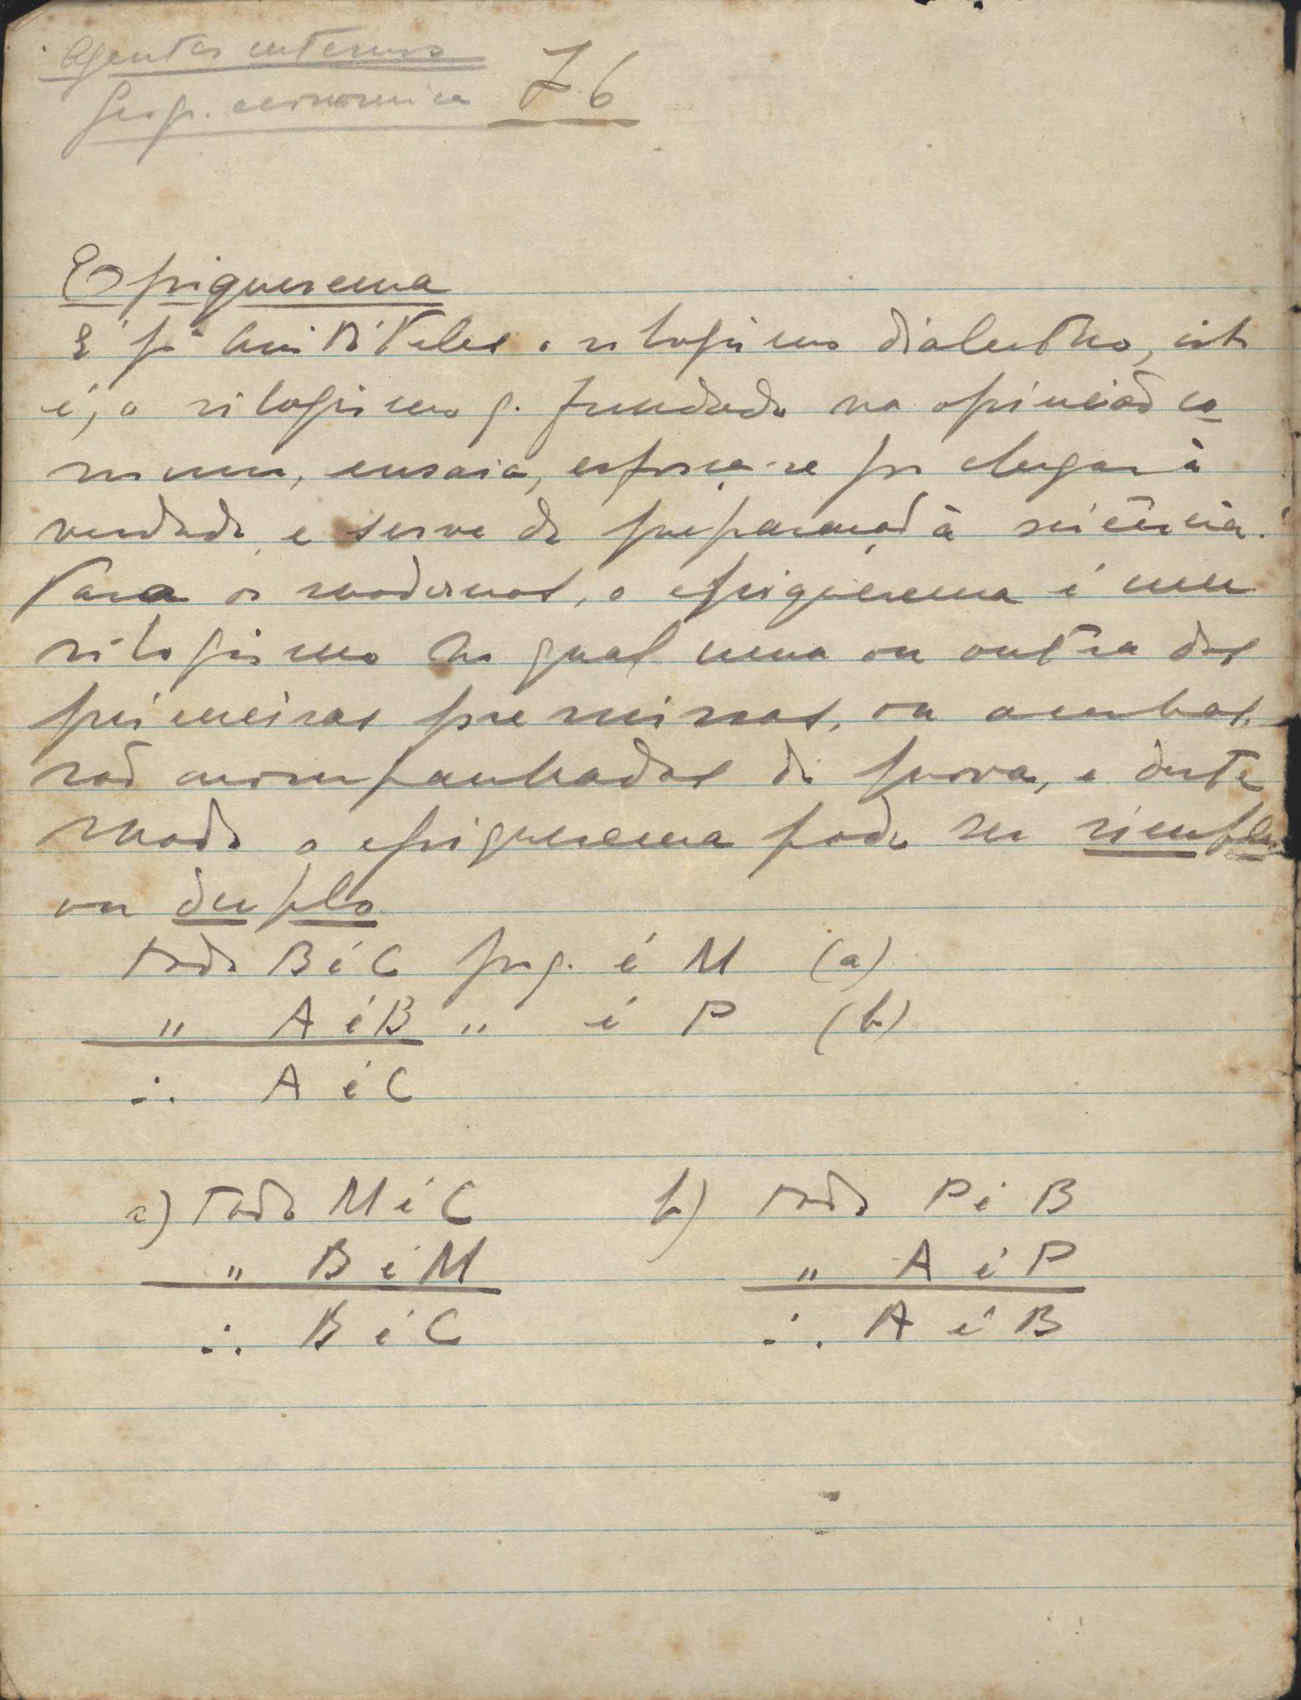 Agentes internos
Geogr. economica 76
Epiquerema
E' pª Aristóteles o silogismo dialectico, isto
é, o silogismo q. fundado na opinião co
mum, ensaia, esforça-se por chegar à
verdade e serve de preparação à sciência.
Para os modernos, o epiquerema é um
silogismo no qual uma ou outra das
primeiras premissas, ou ambas,
são acompanhadas da prova, e deste
modo o epiquerema pode ser simples
ou duplo
todo B é C porq. é M (a)
" A é B " é P (b)
∴ A é C
a) Todo M é C b) todo P é B
" B é M " A é P
∴ B é C ∴ A é B